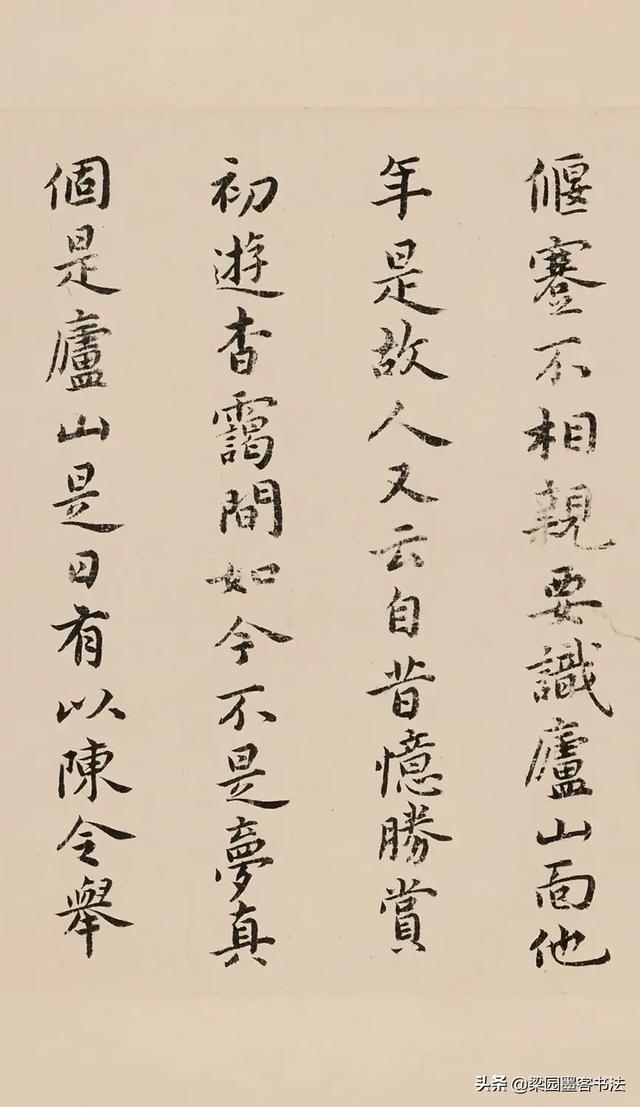 偃蹇不相親要識廬山面他
年是故人又云自昔憶勝賞
初遊杳靄間如今不是夢真
個是廬山是日有以陳令舉
头条 @梁园墨客书法